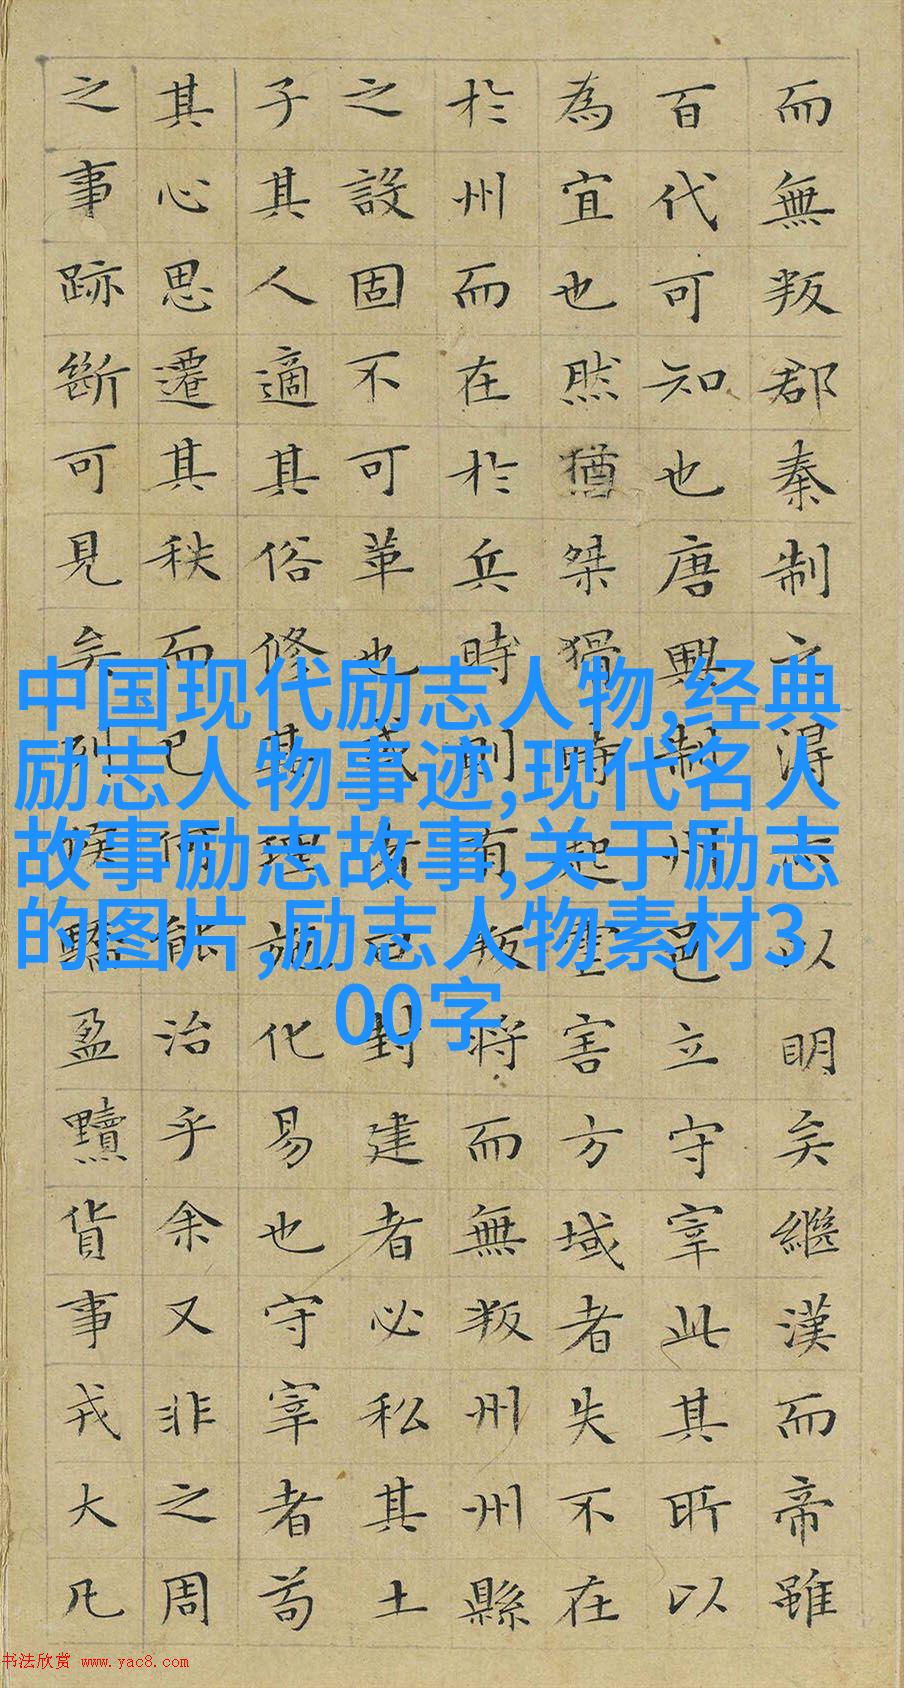 中国现代励志人物,经典
励志人物事迹,现代名人
故事励志故事,关于励志
的图片,励志人物素材3
00字
而無叛郡秦制之淂志以明矣繼漢而帝雖
百代可知也唐興制州邑立守宰此其所以
為宜也然猶桀猾時起虐害方域者失不在
於州而在於兵時則有叛將而無叛州州縣
之設固不可革也或者曰封建者必私其土
子其人適其俗修其理施化易也守宰者苟
其心思遷其秩而已何能治乎余又非之周
之事跡斷可見矣列侯驕盈黷貨事戎大凡
书法欣赏 www.yac8.com